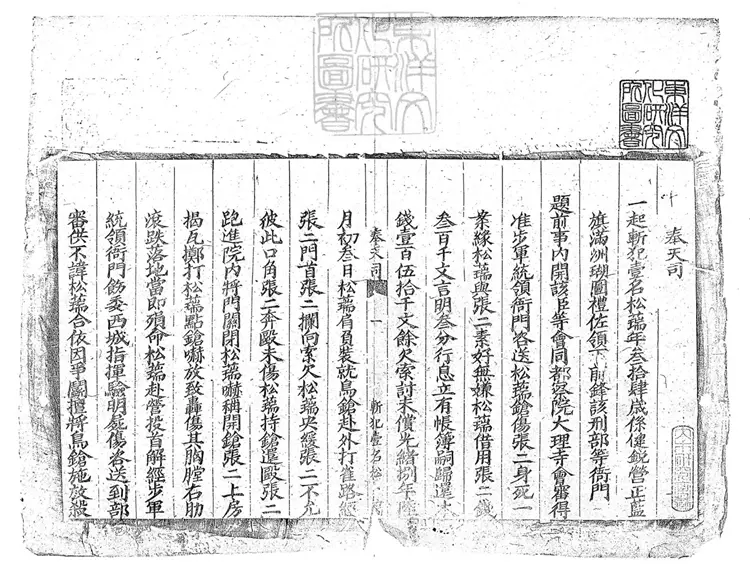 東洋文化研究所圖書
東洋文化研究所圖書
奉天司
一起斬犯壹名松瑞年叁拾肆歲係健銳營正藍
旗滿洲瑚圖禮佐領下前鋒該刑部等衙門
題前事內開該臣等會同都察院大理寺會審得
准步軍統領衙門咨送松瑞鎗傷張二身死一
案緣松瑞與張二素好無嫌松瑞借用張二錢
叁百千文言明叁分行息立有帳簿嗣歸還本
錢壹百伍拾千文餘欠索討未償光緒捌年
奉天司
一
斬犯壹名松
月初叁日松瑞肩負裝就鳥鎗赴外打雀路經
張二門首張二攔向索欠松瑞央緩張二不允
彼此口角張二奔毆未傷松瑞持鎗還毆張二
跑進院內將門關閉松瑞嚇稱開鎗張二上房
揭瓦擲打松瑞點鎗嚇放致轟傷其胸膛右肋
滾跌落地當即殞命松瑞赴營投首解經步軍
統領衙門飭委西城指揮驗明屍傷咨送到部
審供不諱松瑞合依因爭鬬擅將鳥鎗施放殺